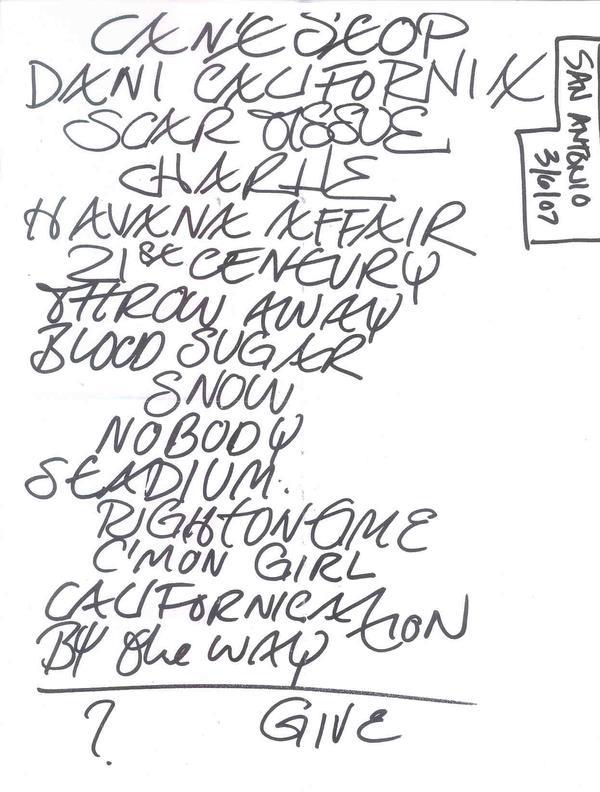 CAN'T STOP
DANI CALIFORNIA
SCAR TISSUE
CHARLIE
HAVANA AFFAIR
21ST CENTURY
THROW AWAY
BLOOD SUGAR
SNOW
NOBODY
STADIUM.
RIGHT ON TIME
C'MON GIRL
CALIFORNICATION
BY the WAY
? GIVE
SAN ANTONIO
3/6/07